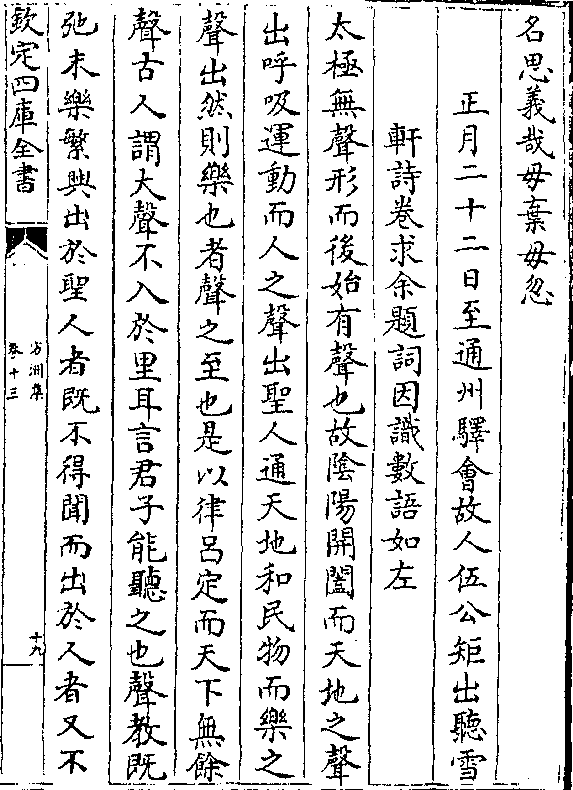 名思義哉毋棄毋忽
正月二十二日至通州驛會故人伍公矩出聽雪
軒詩卷求余題詞因識數語如左
太極無聲形而後始有聲也故陰陽開闔而天地之聲
出呼吸運動而人之聲出聖人通天地和民物而樂之
聲出然則樂也者聲之至也是以律呂定而天下無餘
聲古人謂大聲不入於里耳言君子能聽之也聲教既
弛末樂繁興出於聖人者既不得聞而出於人者又不
欽定四庫全書
方洲集
卷十三
十九